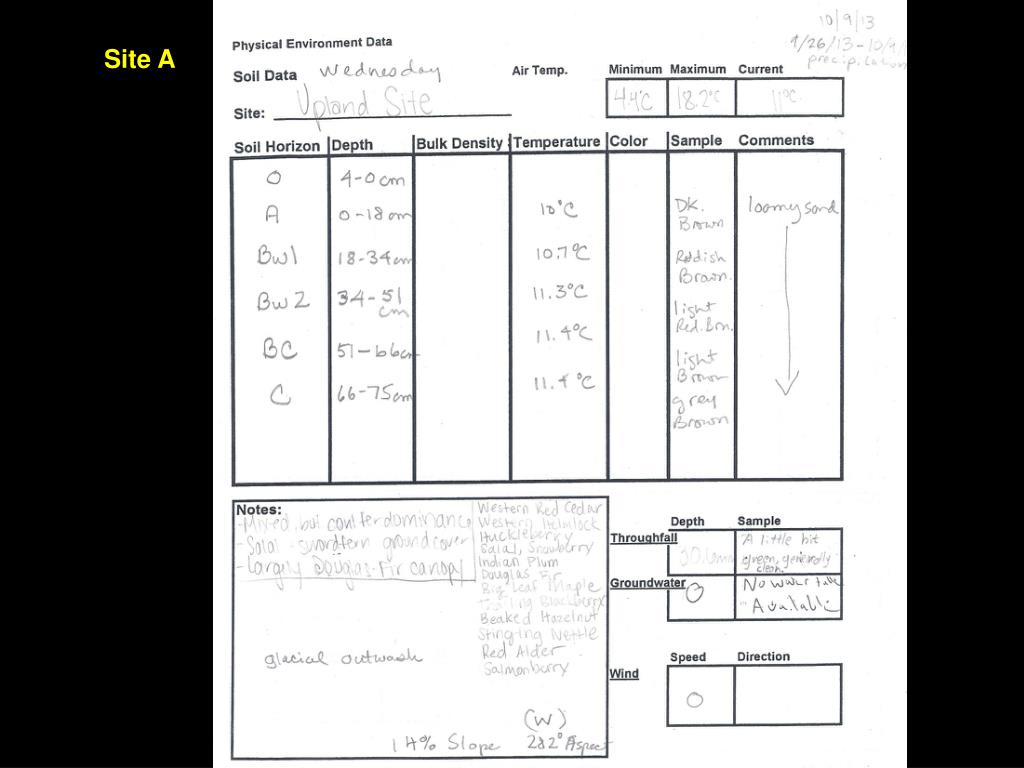 Site A
10/9/13
9/26/13 - 10/9/
precip.
Physical Environment Data
Soil Data Wednesday
Air Temp. Minimum Maximum Current
Site: Upland Site
4.4°C 18.2°C 11°C
Soil Horizon Depth Bulk Density Temperature Color Sample Comments
O 4-0cm
A 0-18cm 10°C DK. Brown loomysand
Bw1 18-34cm 10.7°C Reddish Brown
Bw2 34-51 cm 11.3°C light Red.Brn.
BC 51-66cm 11.4°C light Brown
C 66-75cm 11.4°C grey Brown
Notes:
-Mixed, but conifer dominance
-Salal - swordfern groundcover
-Largely Douglas-Fir canopy
glacial outwash
Western Red Cedar
Western Hemlock
Huckleberry
Salal, Snowberry
Indian Plum
Douglas Fir
Big Leaf Maple
Trailing Blackberry
Beaked Hazelnut
Stinging Nettle
Red Alder
Salmonberry
(W)
14% Slope 282° Aspect
Depth Sample
Throughfall A little bit green, generally clean.
Groundwater O No water table Available
Speed Direction
Wind O